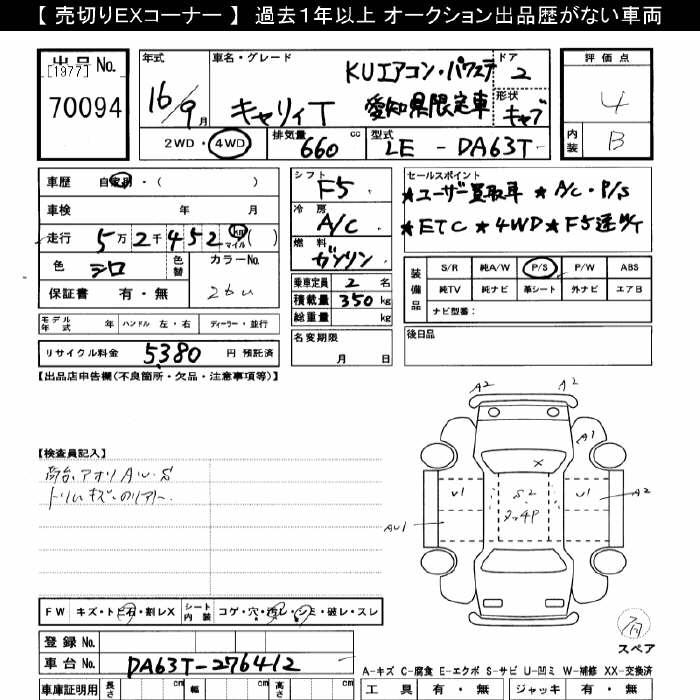 【 売切りEXコーナー 】 過去1年以上 オークション出品歴がない車両
出品No. [1977] 70094
年式 16/9月
車名・グレード KUエアコン・パワステ
キャリィT 愛知県限定車
ドア 2
形状 キャブ
2WD・4WD 排気量 660 cc 型式 LE - DA63T
評価点 4
内装 B
車歴 自家用・( )
車検 年 月
走行 5万2千452 km マイル ( )
色 シロ 色替 カラーNo.
保証書 有・無
モデル年式 年 ハンドル 左・右 ディーラー・並行
リサイクル料金 5380 円 預託済
シフト F5
冷房 A/C
燃料 ガソリン
乗車定員 2 名
積載量 350 kg
総重量 kg
名変期限
月 日
セールスポイント
★ユーザー買取車 ★A/C・P/S
★ETC ★4WD ★F5速MT
装備品 S/R 純A/W P/S P/W ABS
純TV 純ナビ 革シート 外ナビ エアB
ナビ型番:
後日品
【出品店申告欄(不良箇所・欠品・注意事項等)】
【検査員記入】
荷台、アオリ AU、S
A2 A2
A1
X
U1 S2 U1 A2
AU1
FW キズ・トビ石・割レX シート内装 コゲ・穴・汚レ・シミ・破レ・スレ
登録No.
車台No. DA63T-276412
車庫証明用 長さ cm 幅 cm 高さ cm
スペア
A-キズ C-腐食 E-エクボ S-サビ U-凹ミ W-補修 XX-交換済
工具 有・無 ジャッキ 有・無